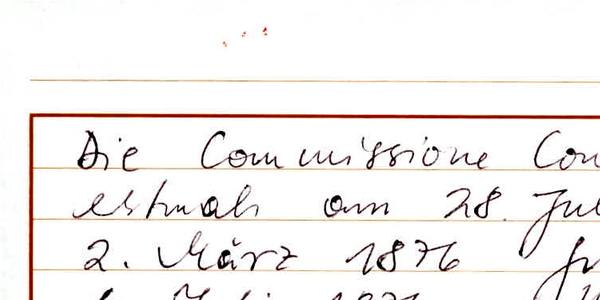 Die Commissione Con
estmals am 28. Jul
2. März 1876